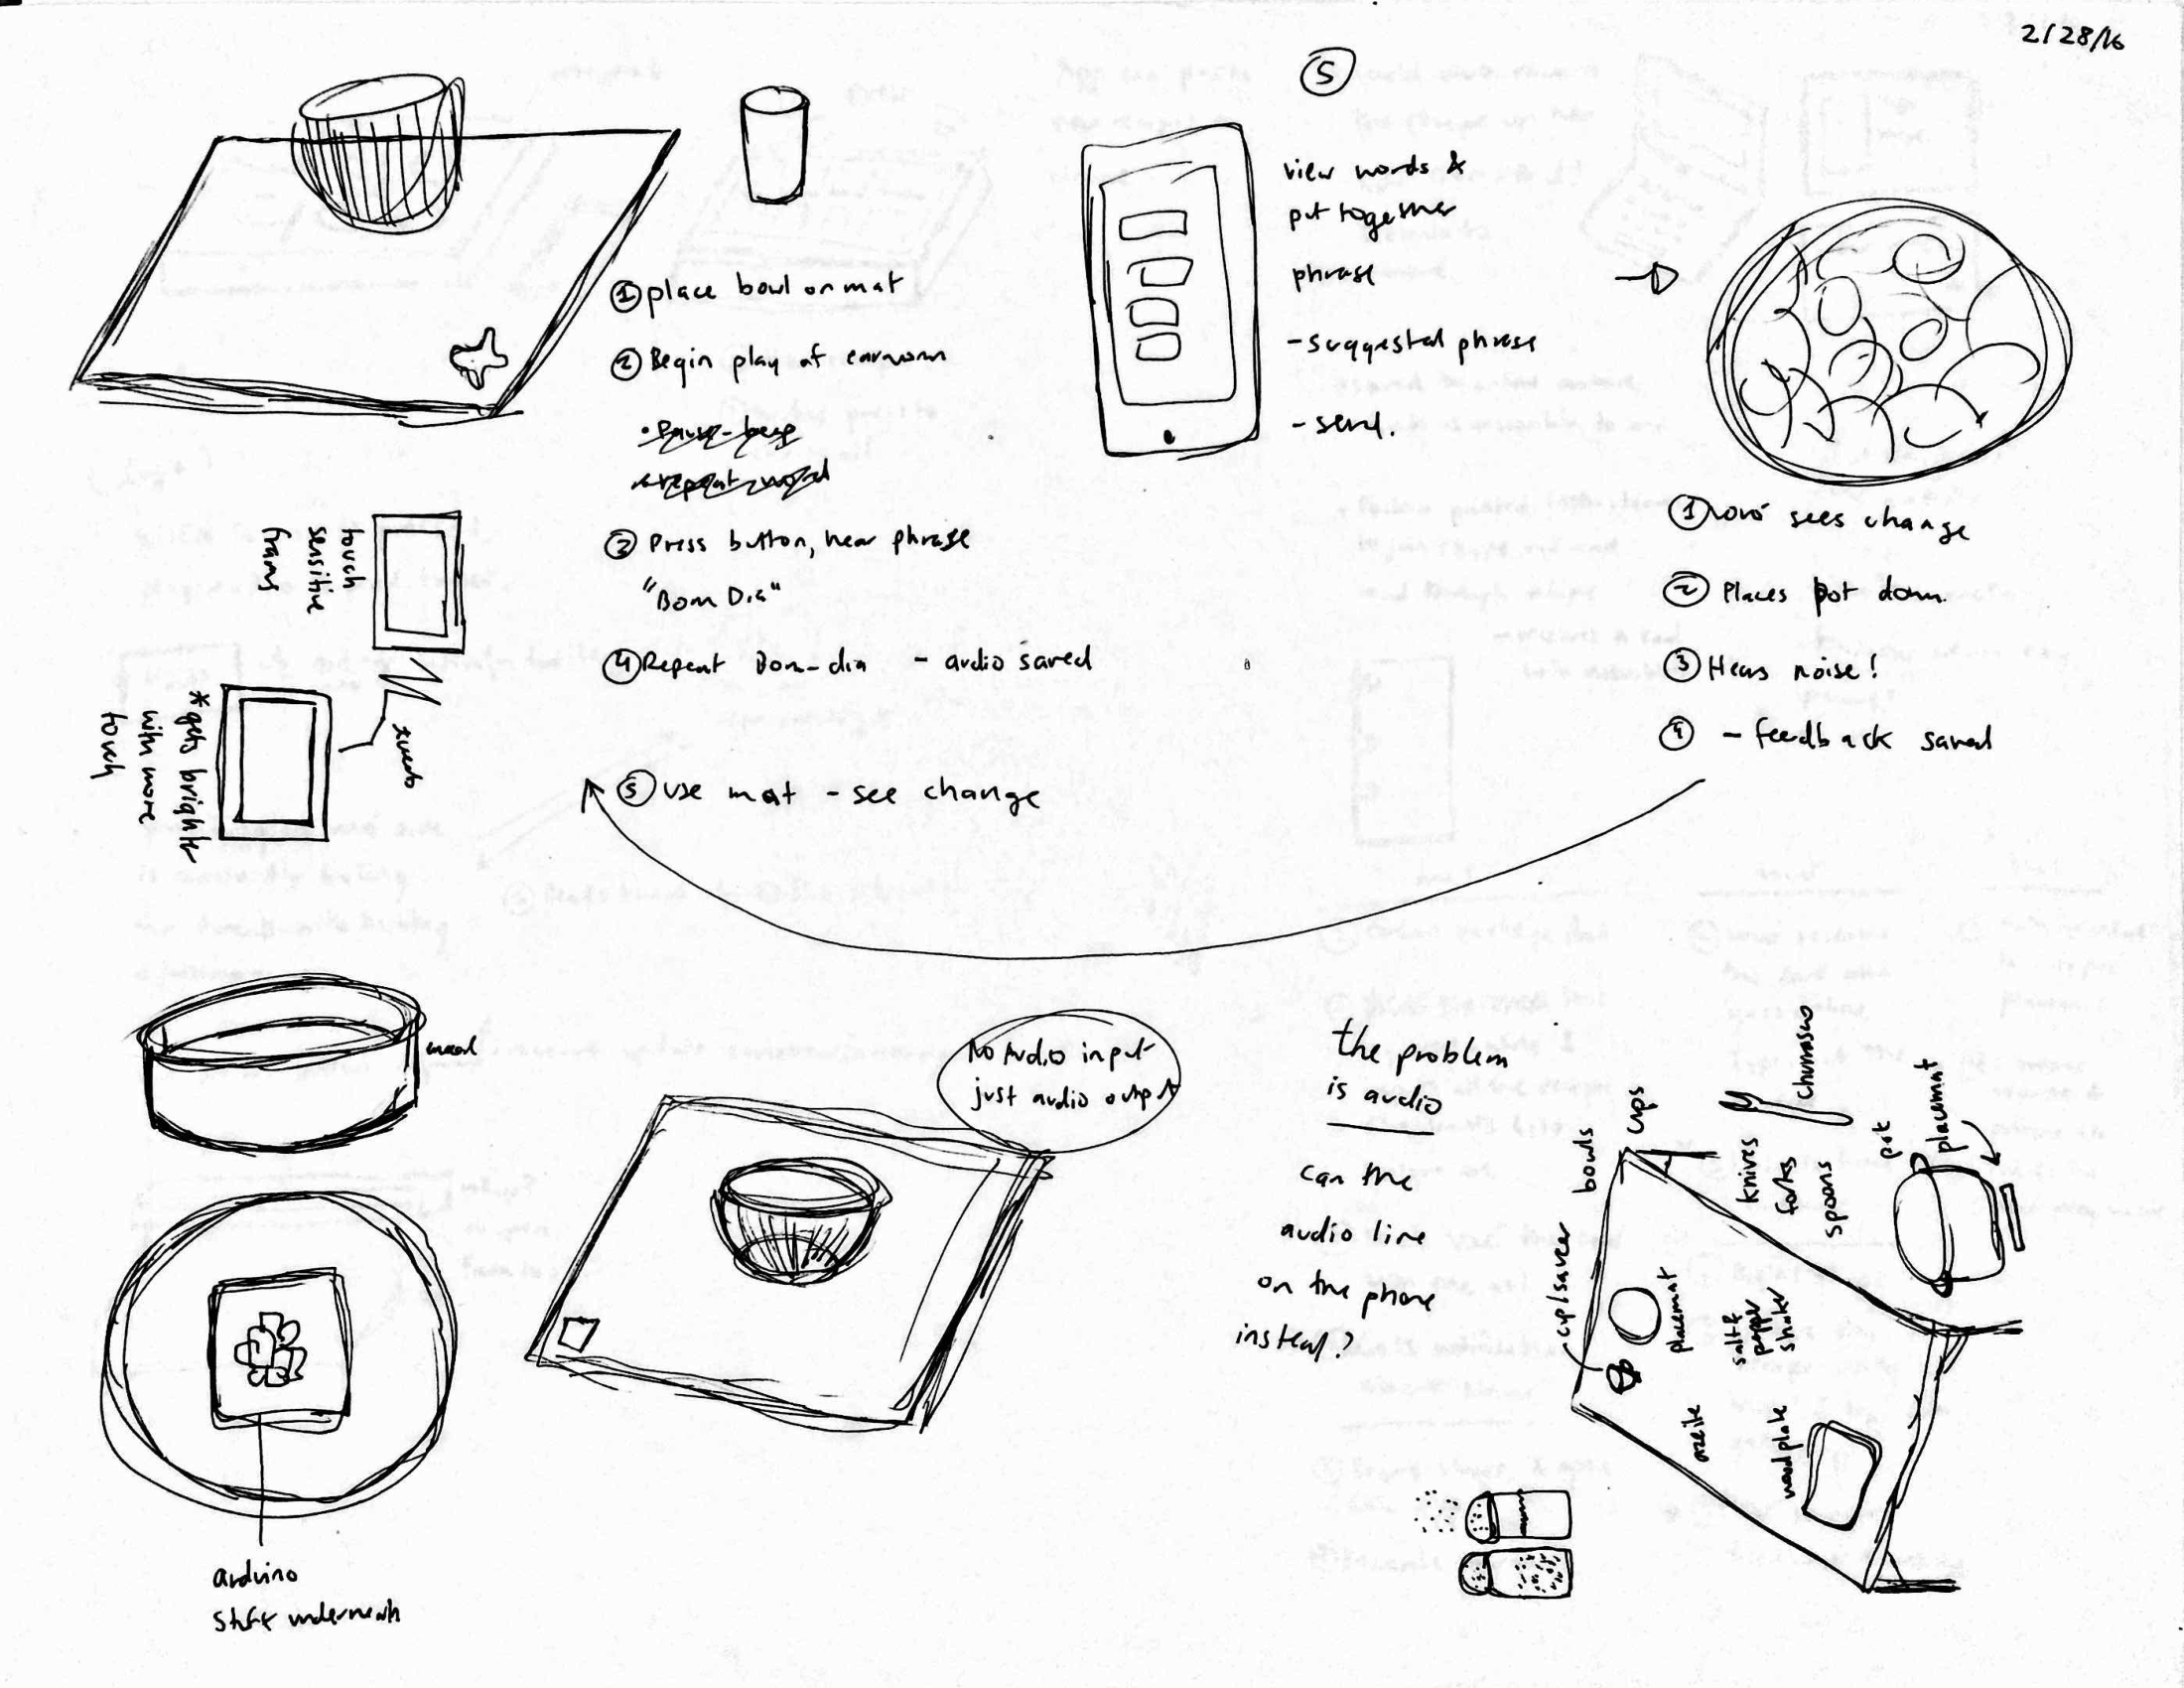 2/28/16
① place bowl on mat
② Begin play of earworm
• Pause - beep
• repeat word
③ Press button, hear phrase
"Bom Dia"
④ Repeat Bom-dia - audio saved
⑤ use mat - see change
touch
sensitive
frams
*gets brighter
with more
touch
⑤
view words &
put together
phrase
- suggested phrase
- send.
① vovó sees change
② Places pot down.
③ Hears noise!
④ - feedback saved
No Audio input
just audio output
the problem
is audio
can the
audio live
on the phone
instead?
arduino
stuff underneath
bowls
cups
churrasco
knives
forks
spoons
pot
placemat
cup/saucer
placemat
salt &
pepper
shaker
azeite
wood plate